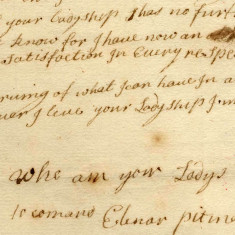 your Ladyship I has no furt
know for I have now an
satisfaction In Every respe
ruing of what I can have In a
ver I leve your Ladyship I m
Whe am your Ladys
to comand Elenar pitm